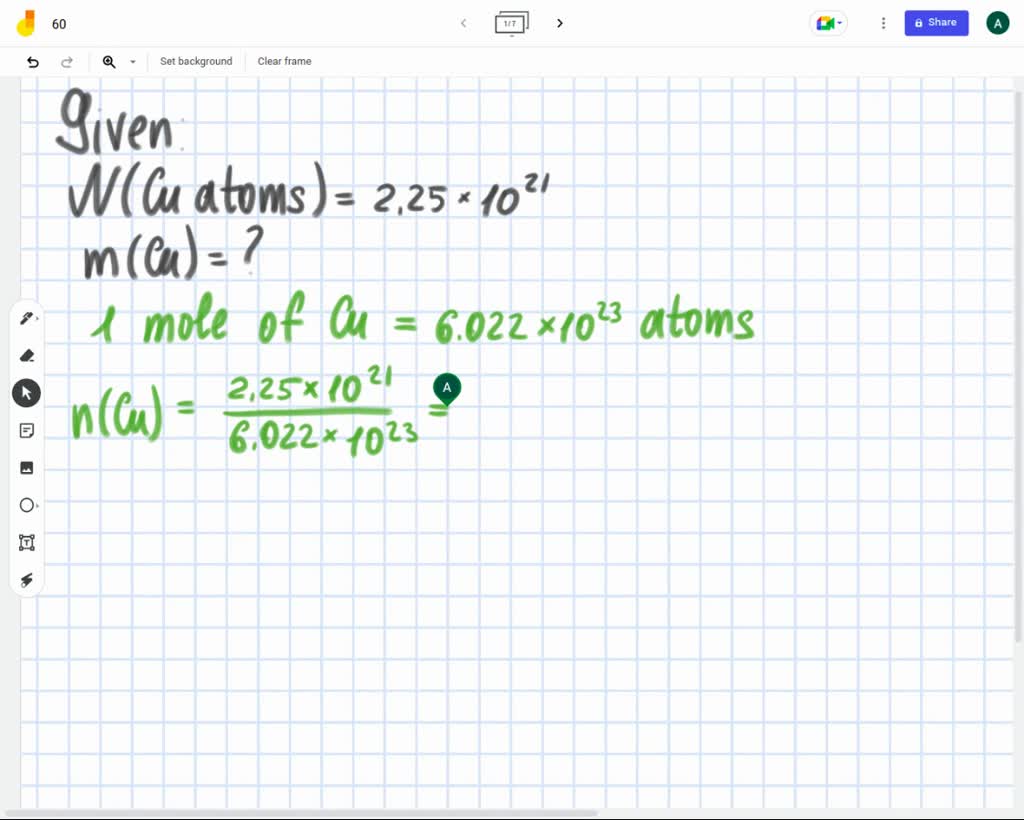 60
1/7
Share
A
Set background
Clear frame
Given:
N(Cu atoms) = 2.25 × 10²¹
m(Cu) = ?
1 mole of Cu = 6.022 × 10²³ atoms
A
n(Cu) = 2.25 × 10²¹ / 6.022 × 10²³ =